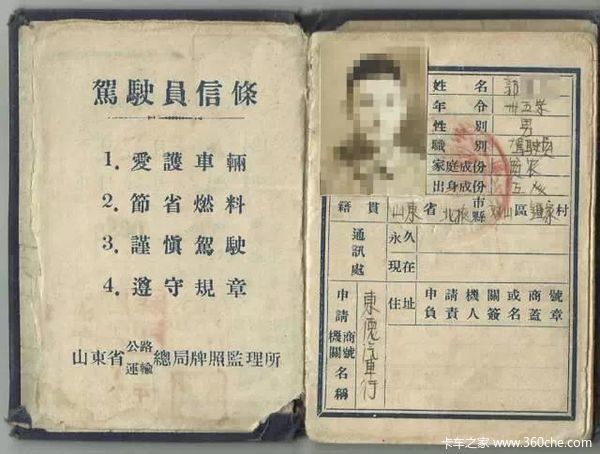 駕駛員信條
1. 愛護車輛
2. 節省燃料
3. 謹慎駕駛
4. 遵守規章
山東省公路運輸總局牌照監理所
姓名 郭
年令 卅五岁
性別 男
職別 駕駛員
家庭成份 貧农
出身成份
籍貫 山東省 市縣 區 村
通訊處 永久
現在
申請機關商號名稱 東 汽車行
住址
申請機關或商號
負責人簽名蓋章
卡车之家 www.360che.com